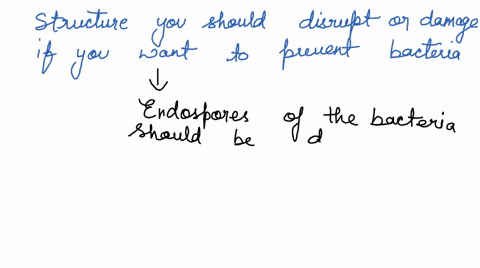 Structure you should disrupt or damage
if you want to prevent bacteria
Endospores of the bacteria
should be d